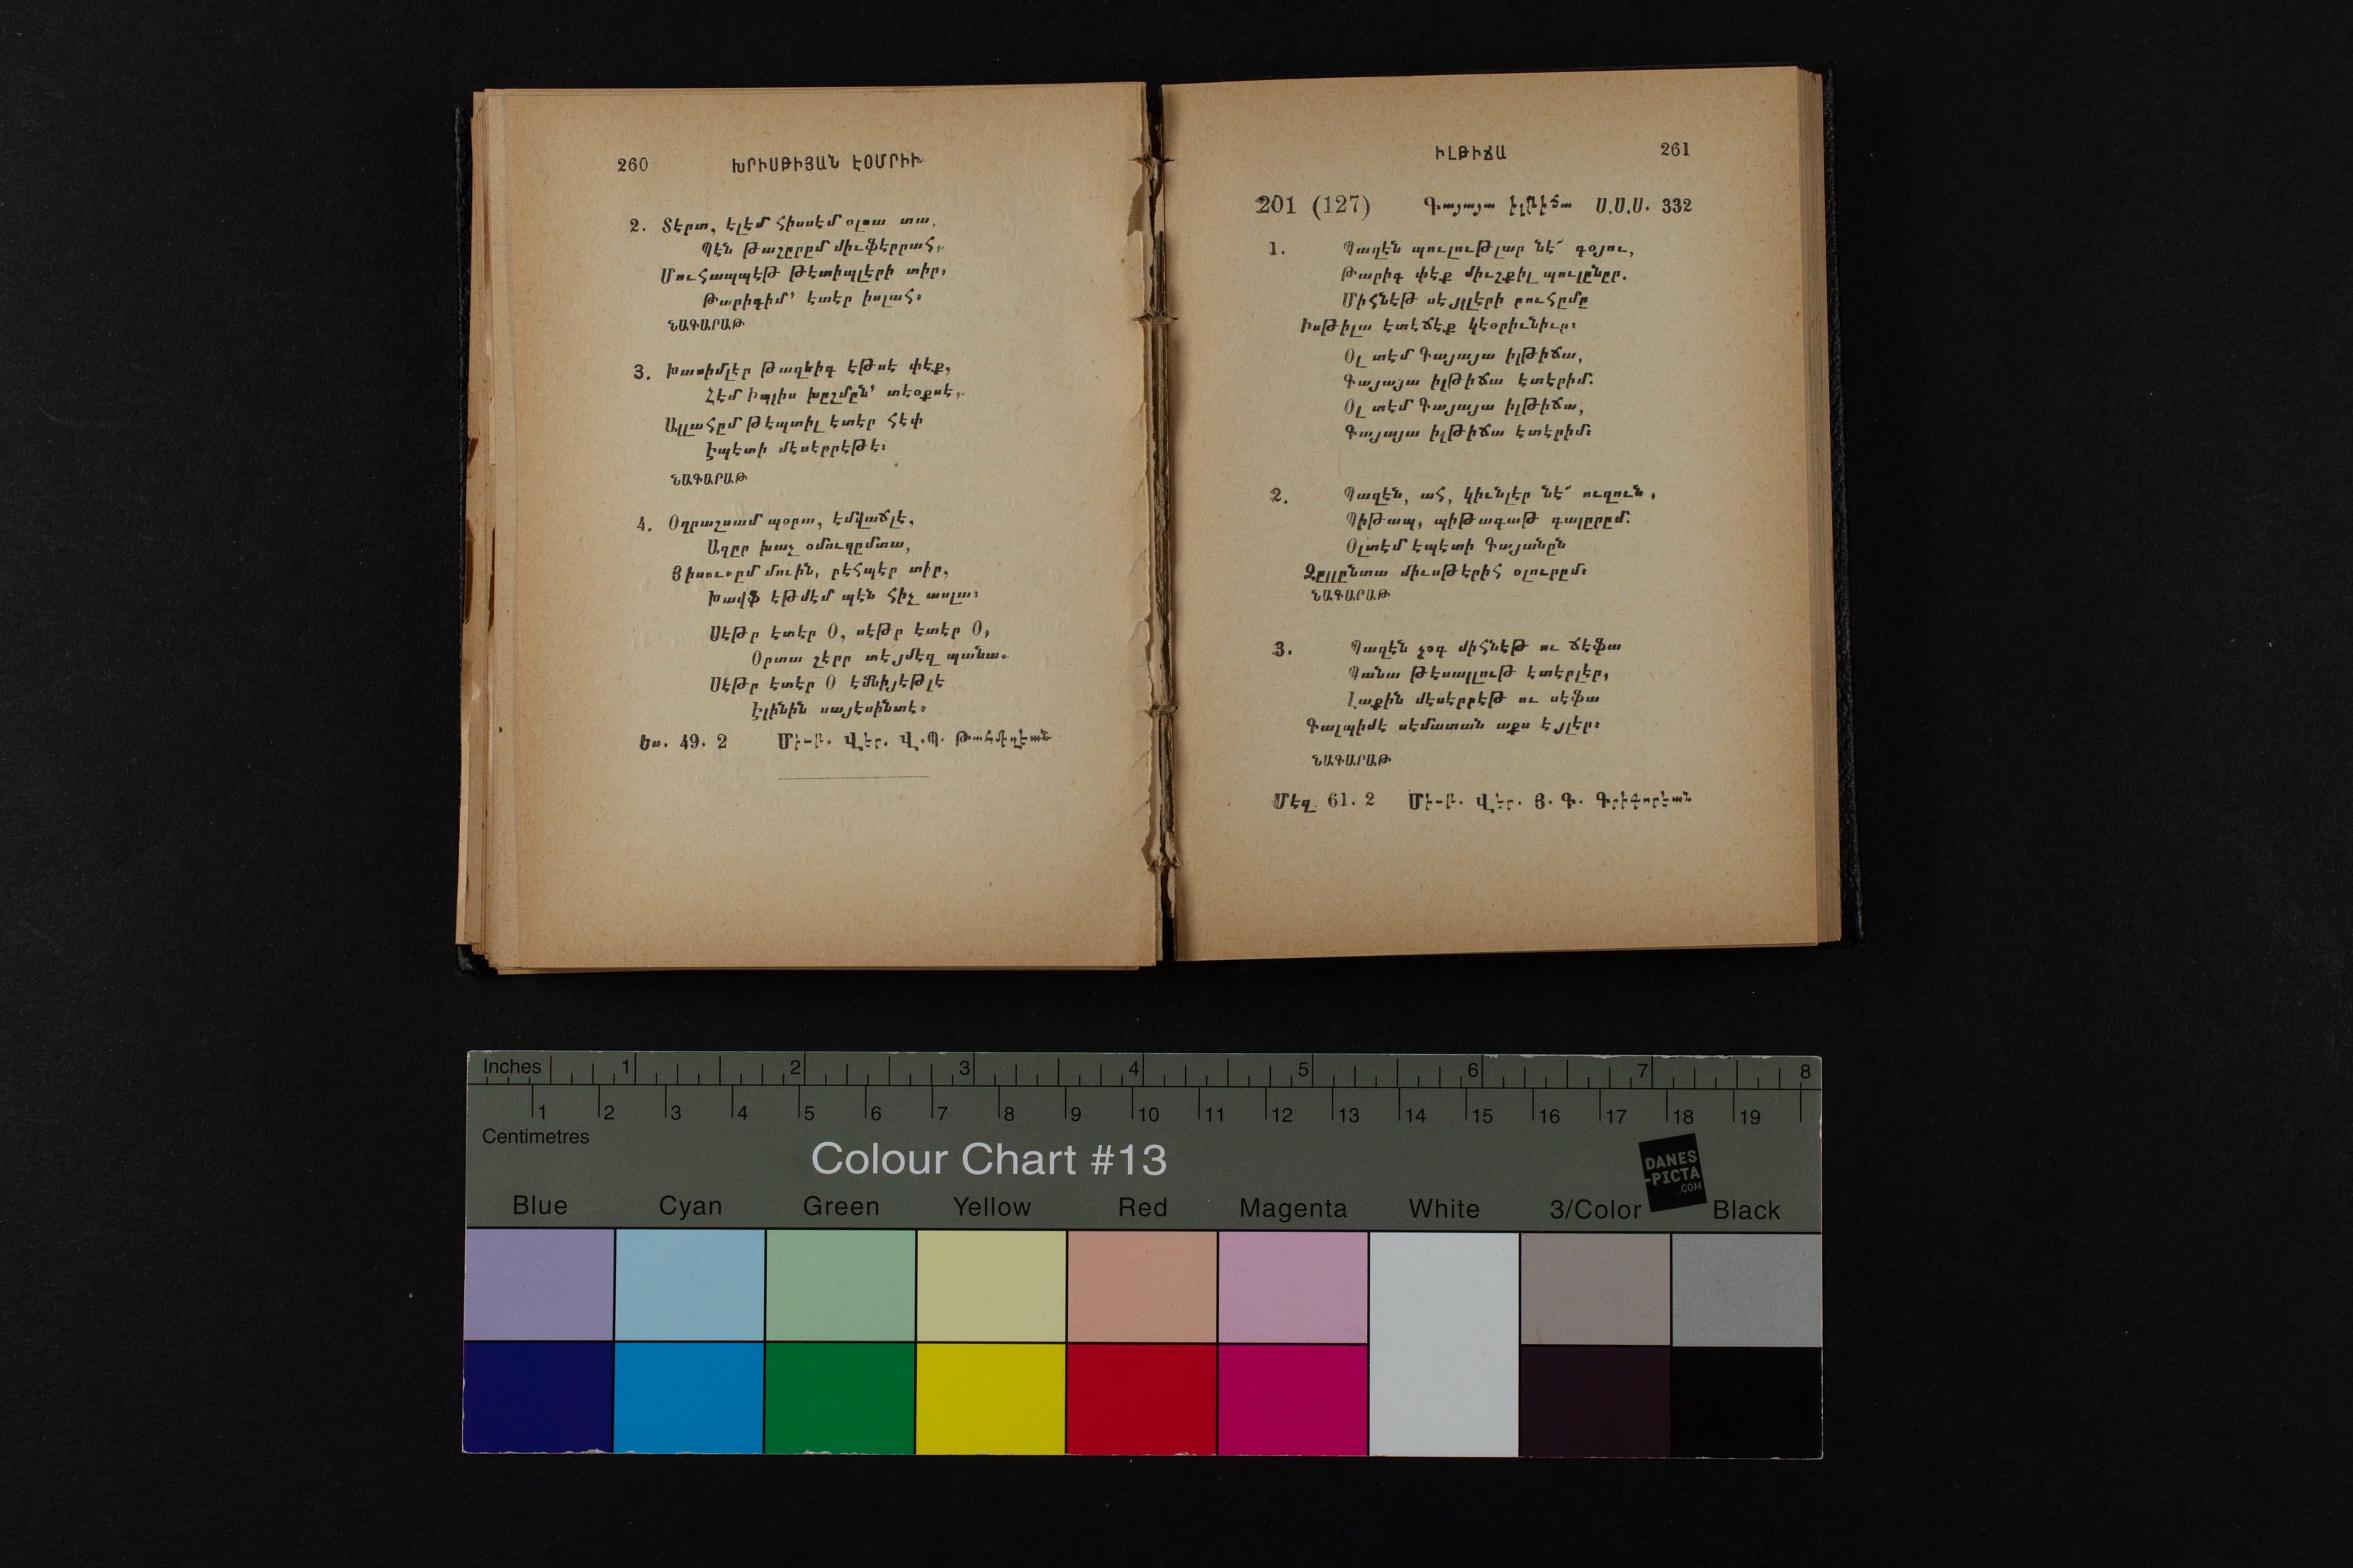 260 ԽՐԻՍԹԻՅԱՆ ԷՕՄՐԻԻ
2. Տէրտ, էլէմ հիսսէմ օլսա տա,
Պէն թաշըրըմ միւֆէրրահ,
Մուհապպէթ թէտիպլէրի տիր,
Թարիգիմ՚ էտէր իսլահ։
ՆԱԳԱՐԱԹ
3. Խասիմլէր թազեիգ էթսէ փէք,
Հէմ Իպլիս խըշմըն՚ տէօքսէ,
Ալլահըմ թէպտիլ էտէր հէփ
Էպէտի մէսէրրէթէ։
ՆԱԳԱՐԱԹ
4. Օղրաշսամ պօրա, էմվաճլէ,
Աղըր խաչ օմուզըմտա,
Յիսուսըմ մուին, րէհպէր տիր,
Խավֆ էթմէմ պէն հիչ ասլա։
Սէթր էտէր Օ, սէթր էտէր Օ,
Օրտա շէրր տէյմէզ պանա.
Սէթր էտէր Օ էմնիյէթլէ
Էլինին սայէսինտէ։
Ես. 49. 2 Միւթ. Վէր. Վ.Պ. Թահմիզէան
261 ԻԼԹԻՃԱ
201 (127) Գայայա իլթիճա Ս.Ս.Ս. 332
1. Պազէն պուլութլար նէ՜ գօյու,
Թարիգ փէք միւշքիլ պուլընըր.
Միհնէթ սէյլլէրի րուհըմը
Իսթիլա էտէճէք կէօրիւնիւր։
Օլ տէմ Գայայա իլթիճա,
Գայայա իլթիճա էտէրիմ.
Օլ տէմ Գայայա իլթիճա,
Գայայա իլթիճա էտէրիմ։
2. Պազէն, ահ, կիւնլէր նէ՜ ուզուն,
Պիթապ, պիթագաթ գալըրըմ.
Օլտէմ էպէտի Գայանըն
Զըլլընտա միւսթէրիհ օլուրըմ։
ՆԱԳԱՐԱԹ
3. Պազէն չօգ միհնէթ ու ճէֆա
Պանա թէսալլութ էտէրլէր,
Լաքին մէսէրրէթ ու սէֆա
Գալպիմէ սէմատան աքս էյլէր։
ՆԱԳԱՐԱԹ
Մէզ. 61. 2 Միւթ. Վէր. Յ. Գ. Գրիգորէան
Inches 1 2 3 4 5 6 7 8
1 2 3 4 5 6 7 8 9 10 11 12 13 14 15 16 17 18 19
Centimetres
Colour Chart #13
DANES
-PICTA
.COM
Blue Cyan Green Yellow Red Magenta White 3/Color Black